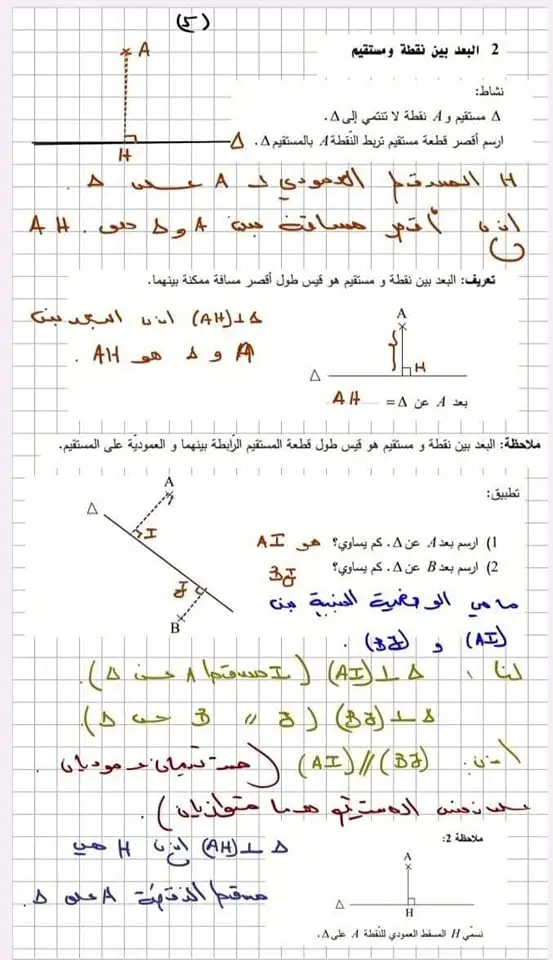 (5)
2 البعد بين نقطة ومستقيم
نشاط:
Δ مستقيم و A نقطة لا تنتمي إلى Δ.
ارسم أقصر قطعة مستقيم تربط النّقطة A بالمستقيم Δ.
A
Δ
H
H المسقط العمودي لـ A على Δ.
إذن أقصر مسافة بين A و Δ هي AH.
تعريف: البعد بين نقطة و مستقيم هو قيس طول أقصر مسافة ممكنة بينهما.
(AH)⊥Δ إذن البعد بين
A و Δ هو AH.
A
H
Δ
بعد A عن Δ = AH
ملاحظة: البعد بين نقطة و مستقيم هو قيس طول قطعة المستقيم الرّابطة بينهما و العموديّة على المستقيم.
تطبيق:
A
Δ
I
J
B
1) ارسم بعد A عن Δ. كم يساوي؟ هو AI
2) ارسم بعد B عن Δ. كم يساوي؟ BJ
ما هي الوضعية النسبية بين
(AI) و (BJ).
لنا: Δ⊥(AI) (I مسقط A على Δ).
Δ⊥(BJ) (J // B على Δ).
إذن: (AI)//(BJ) (مستقيمان عموديان
على نفس المستقيم هما متوازيان).
ملاحظة 2:
Δ⊥(AH) إذن H هي
مسقط النقطة A على Δ.
A
Δ
H
نسمّي H المسقط العمودي للنّقطة A على Δ.